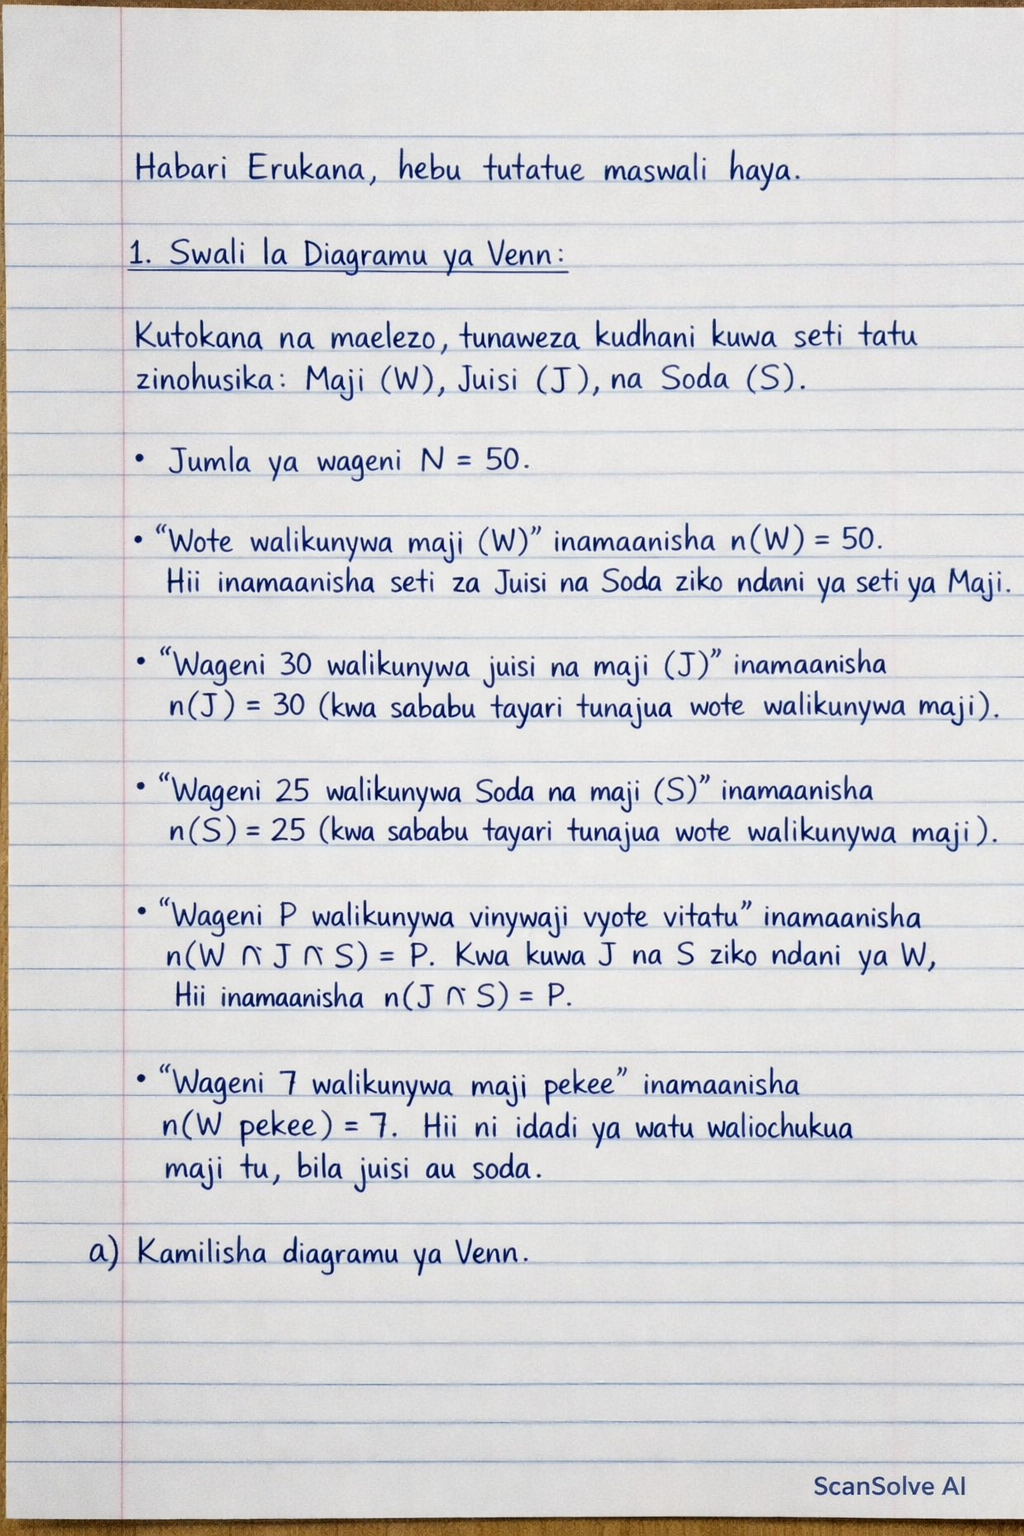 Habari Erukana, hebu tutatue maswali haya.
1. Swali la Diagramu ya Venn:
Kutokana na maelezo, tunaweza kudhani kuwa seti tatu
zinohusika: Maji (W), Juisi (J), na Soda (S).
• Jumla ya wageni N = 50.
• “Wote walikunywa maji (W)” inamaanisha n(W) = 50.
Hii inamaanisha seti za Juisi na Soda ziko ndani ya seti ya Maji.
• “Wageni 30 walikunywa juisi na maji (J)” inamaanisha
n(J) = 30 (kwa sababu tayari tunajua wote walikunywa maji).
• “Wageni 25 walikunywa Soda na maji (S)” inamaanisha
n(S) = 25 (kwa sababu tayari tunajua wote walikunywa maji).
• “Wageni P walikunywa vinywaji vyote vitatu” inamaanisha
n(W ∩ J ∩ S) = P. Kwa kuwa J na S ziko ndani ya W,
Hii inamaanisha n(J ∩ S) = P.
• “Wageni 7 walikunywa maji pekee” inamaanisha
n(W pekee) = 7. Hii ni idadi ya watu waliochukua
maji tu, bila juisi au soda.
a) Kamilisha diagramu ya Venn.
ScanSolve AI